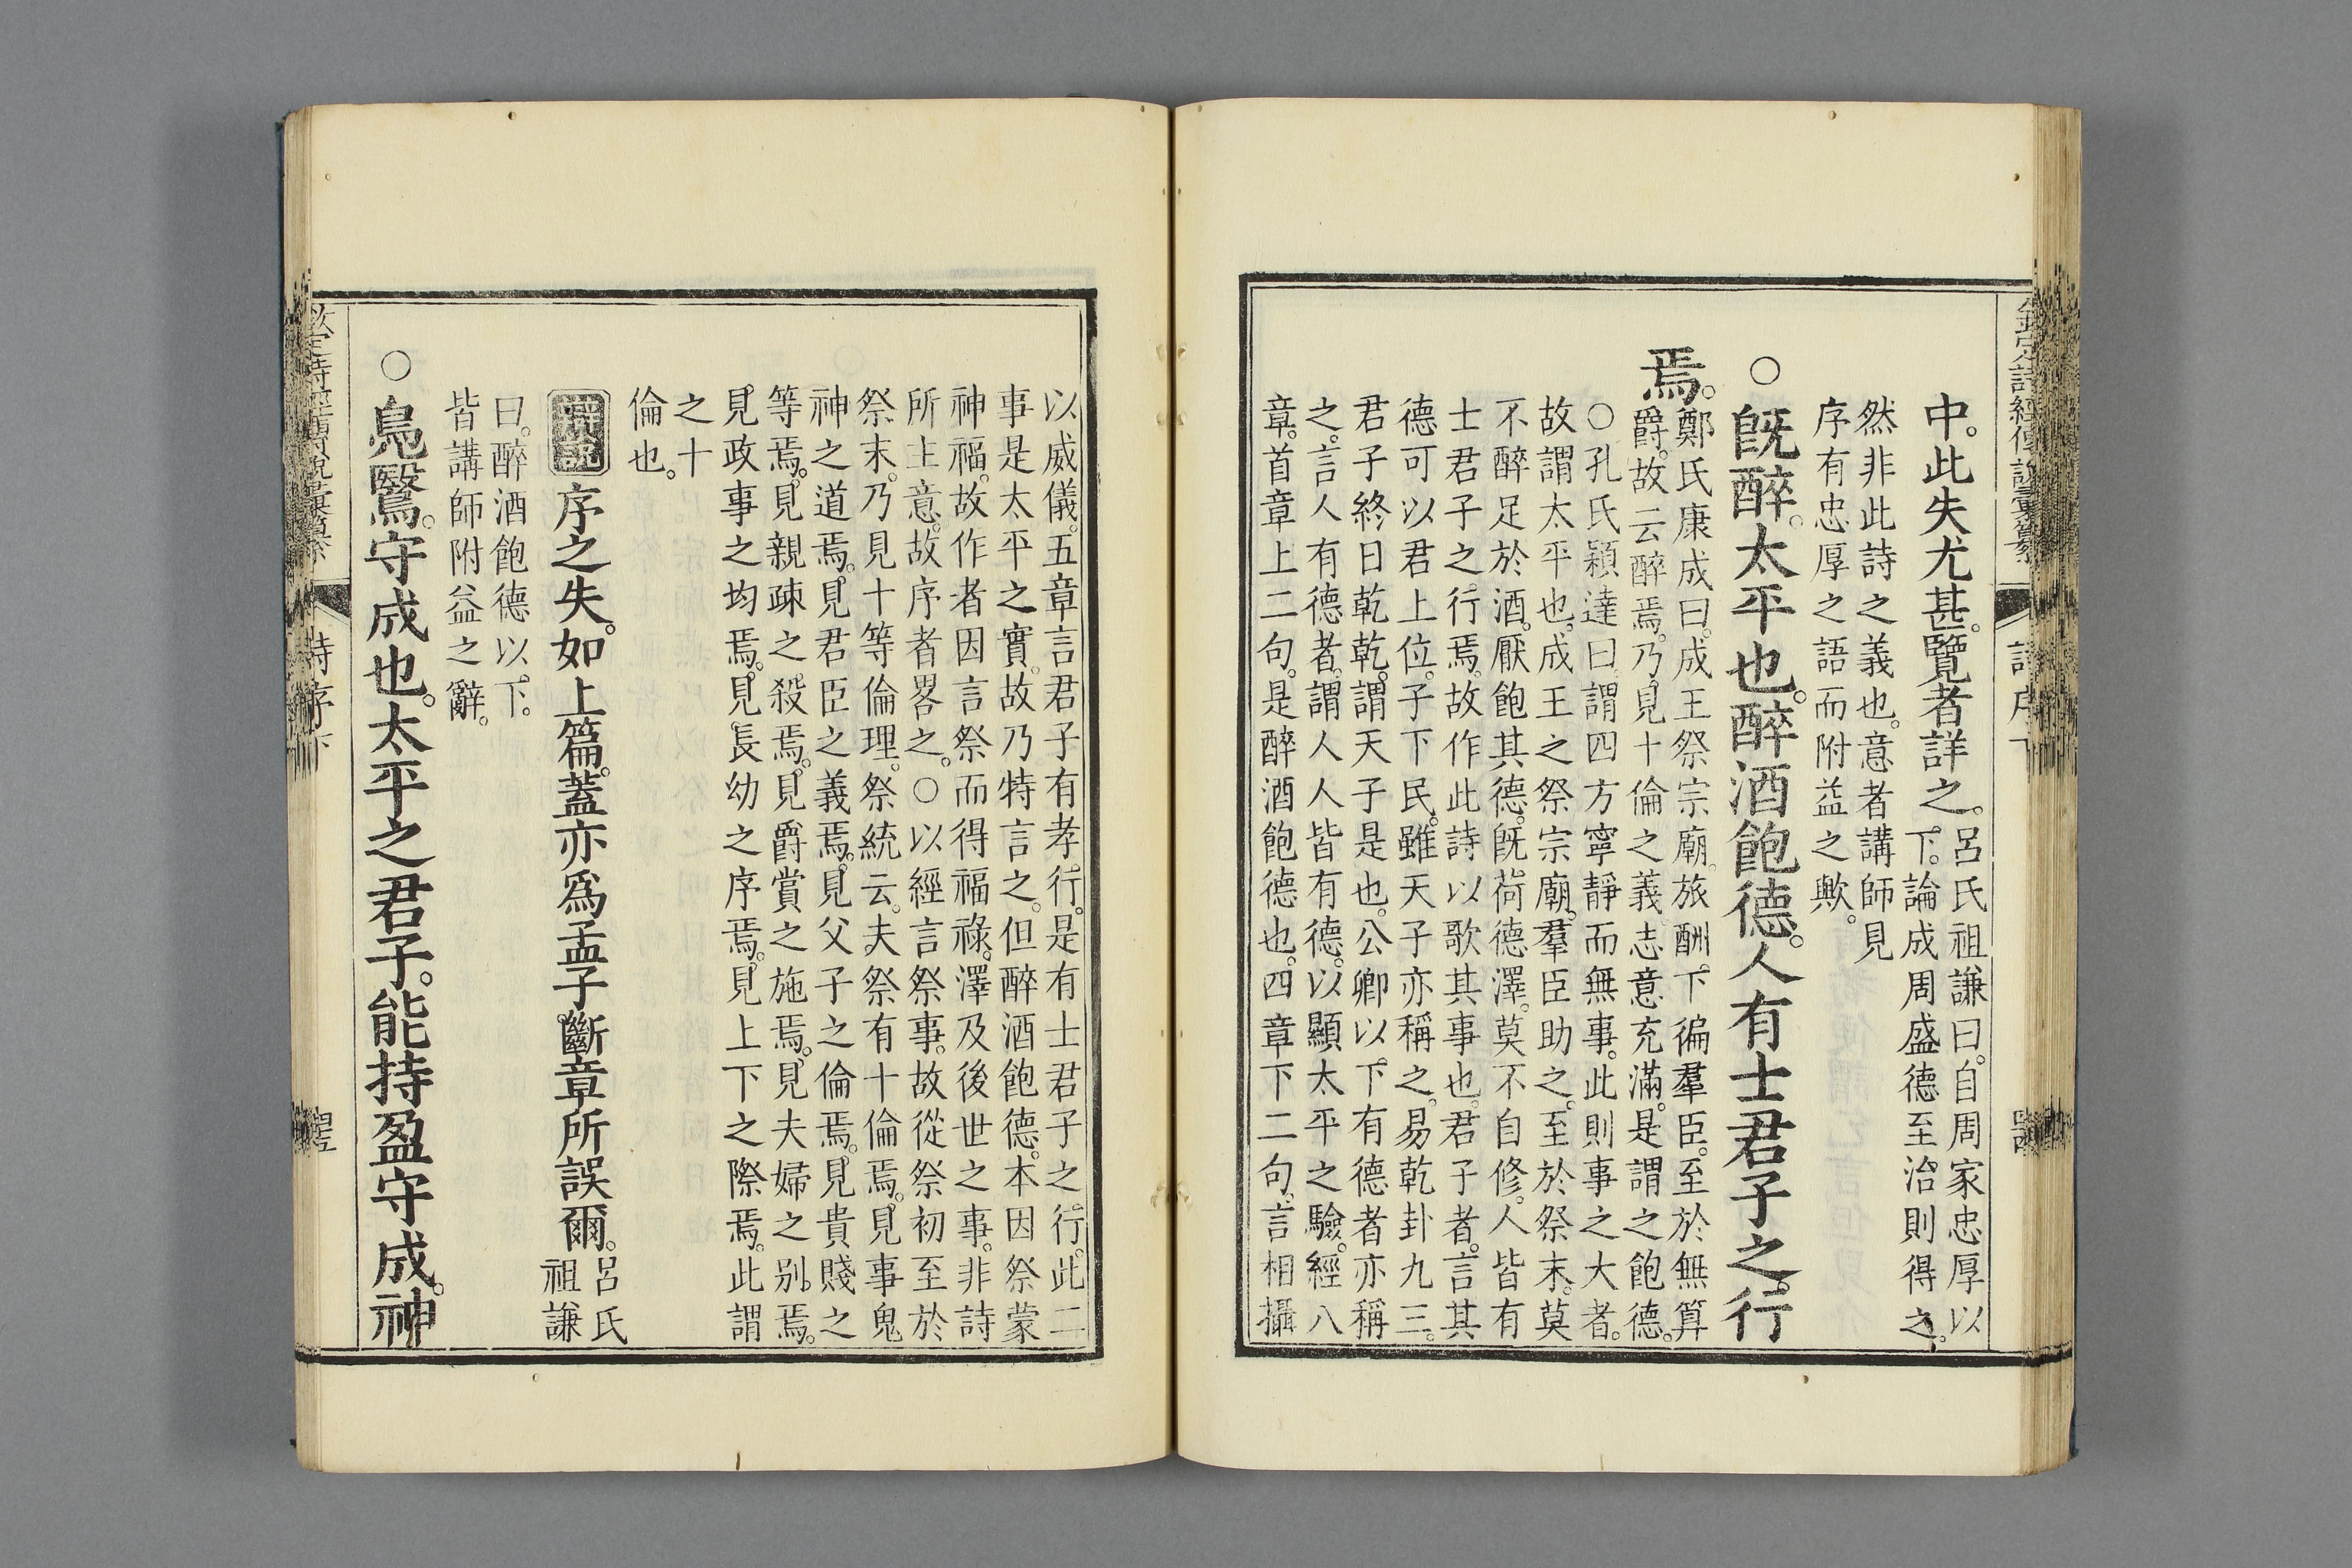 中。此失尤甚。覽者詳之。
呂氏祖謙曰。自周家忠厚以
下。論成周盛德至治則得之。
然非此詩之義也。意者講師見
序有忠厚之語而附益之歟。
○旣醉。太平也。醉酒飽德。人有士君子之行
焉。
鄭氏康成曰。成王祭宗廟。旅酬。下徧羣臣。至於無算
爵。故云醉焉。乃見十倫之義。志意充滿。是謂之飽德。
○孔氏穎達曰。謂四方寧靜而無事。此則事之大者。
故謂太平也。成王之祭宗廟。羣臣助之。至於祭末。莫
不醉足於酒。厭飽其德。旣荷德澤。莫不自修。人皆有
士君子之行焉。故作此詩以歌其事也。君子者。言其
德可以君上位。子下民。雖天子亦稱之。易乾卦九三。
君子終日乾乾。謂天子是也。公卿以下有德者亦稱
之。言人有德者。謂人人皆有德。以顯太平之驗。經八
章。首章上二句。是醉酒飽德也。四章下二句。言相攝
以威儀。五章言君子有孝行。是有士君子之行。此二
事是太平之實。故乃特言之。但醉酒飽德。本因祭蒙
神福。故作者因言祭而得福祿。澤及後世之事。非詩
所主意。故序者畧之。○以經言祭事。故從祭初至於
祭末。乃見十等倫理。祭統云。夫祭有十倫焉。見事鬼
神之道焉。見君臣之義焉。見父子之倫焉。見貴賤之
等焉。見親疎之殺焉。見爵賞之施焉。見夫婦之別焉。
見政事之均焉。見長幼之序焉。見上下之際焉。此謂
之十
倫也。
辨說 序之失。如上篇。蓋亦爲孟子斷章所誤爾。
呂氏
祖謙
曰。醉酒飽德以下。
皆講師附益之辭。
○鳧鷖。守成也。太平之君子。能持盈守成。神
詩序下